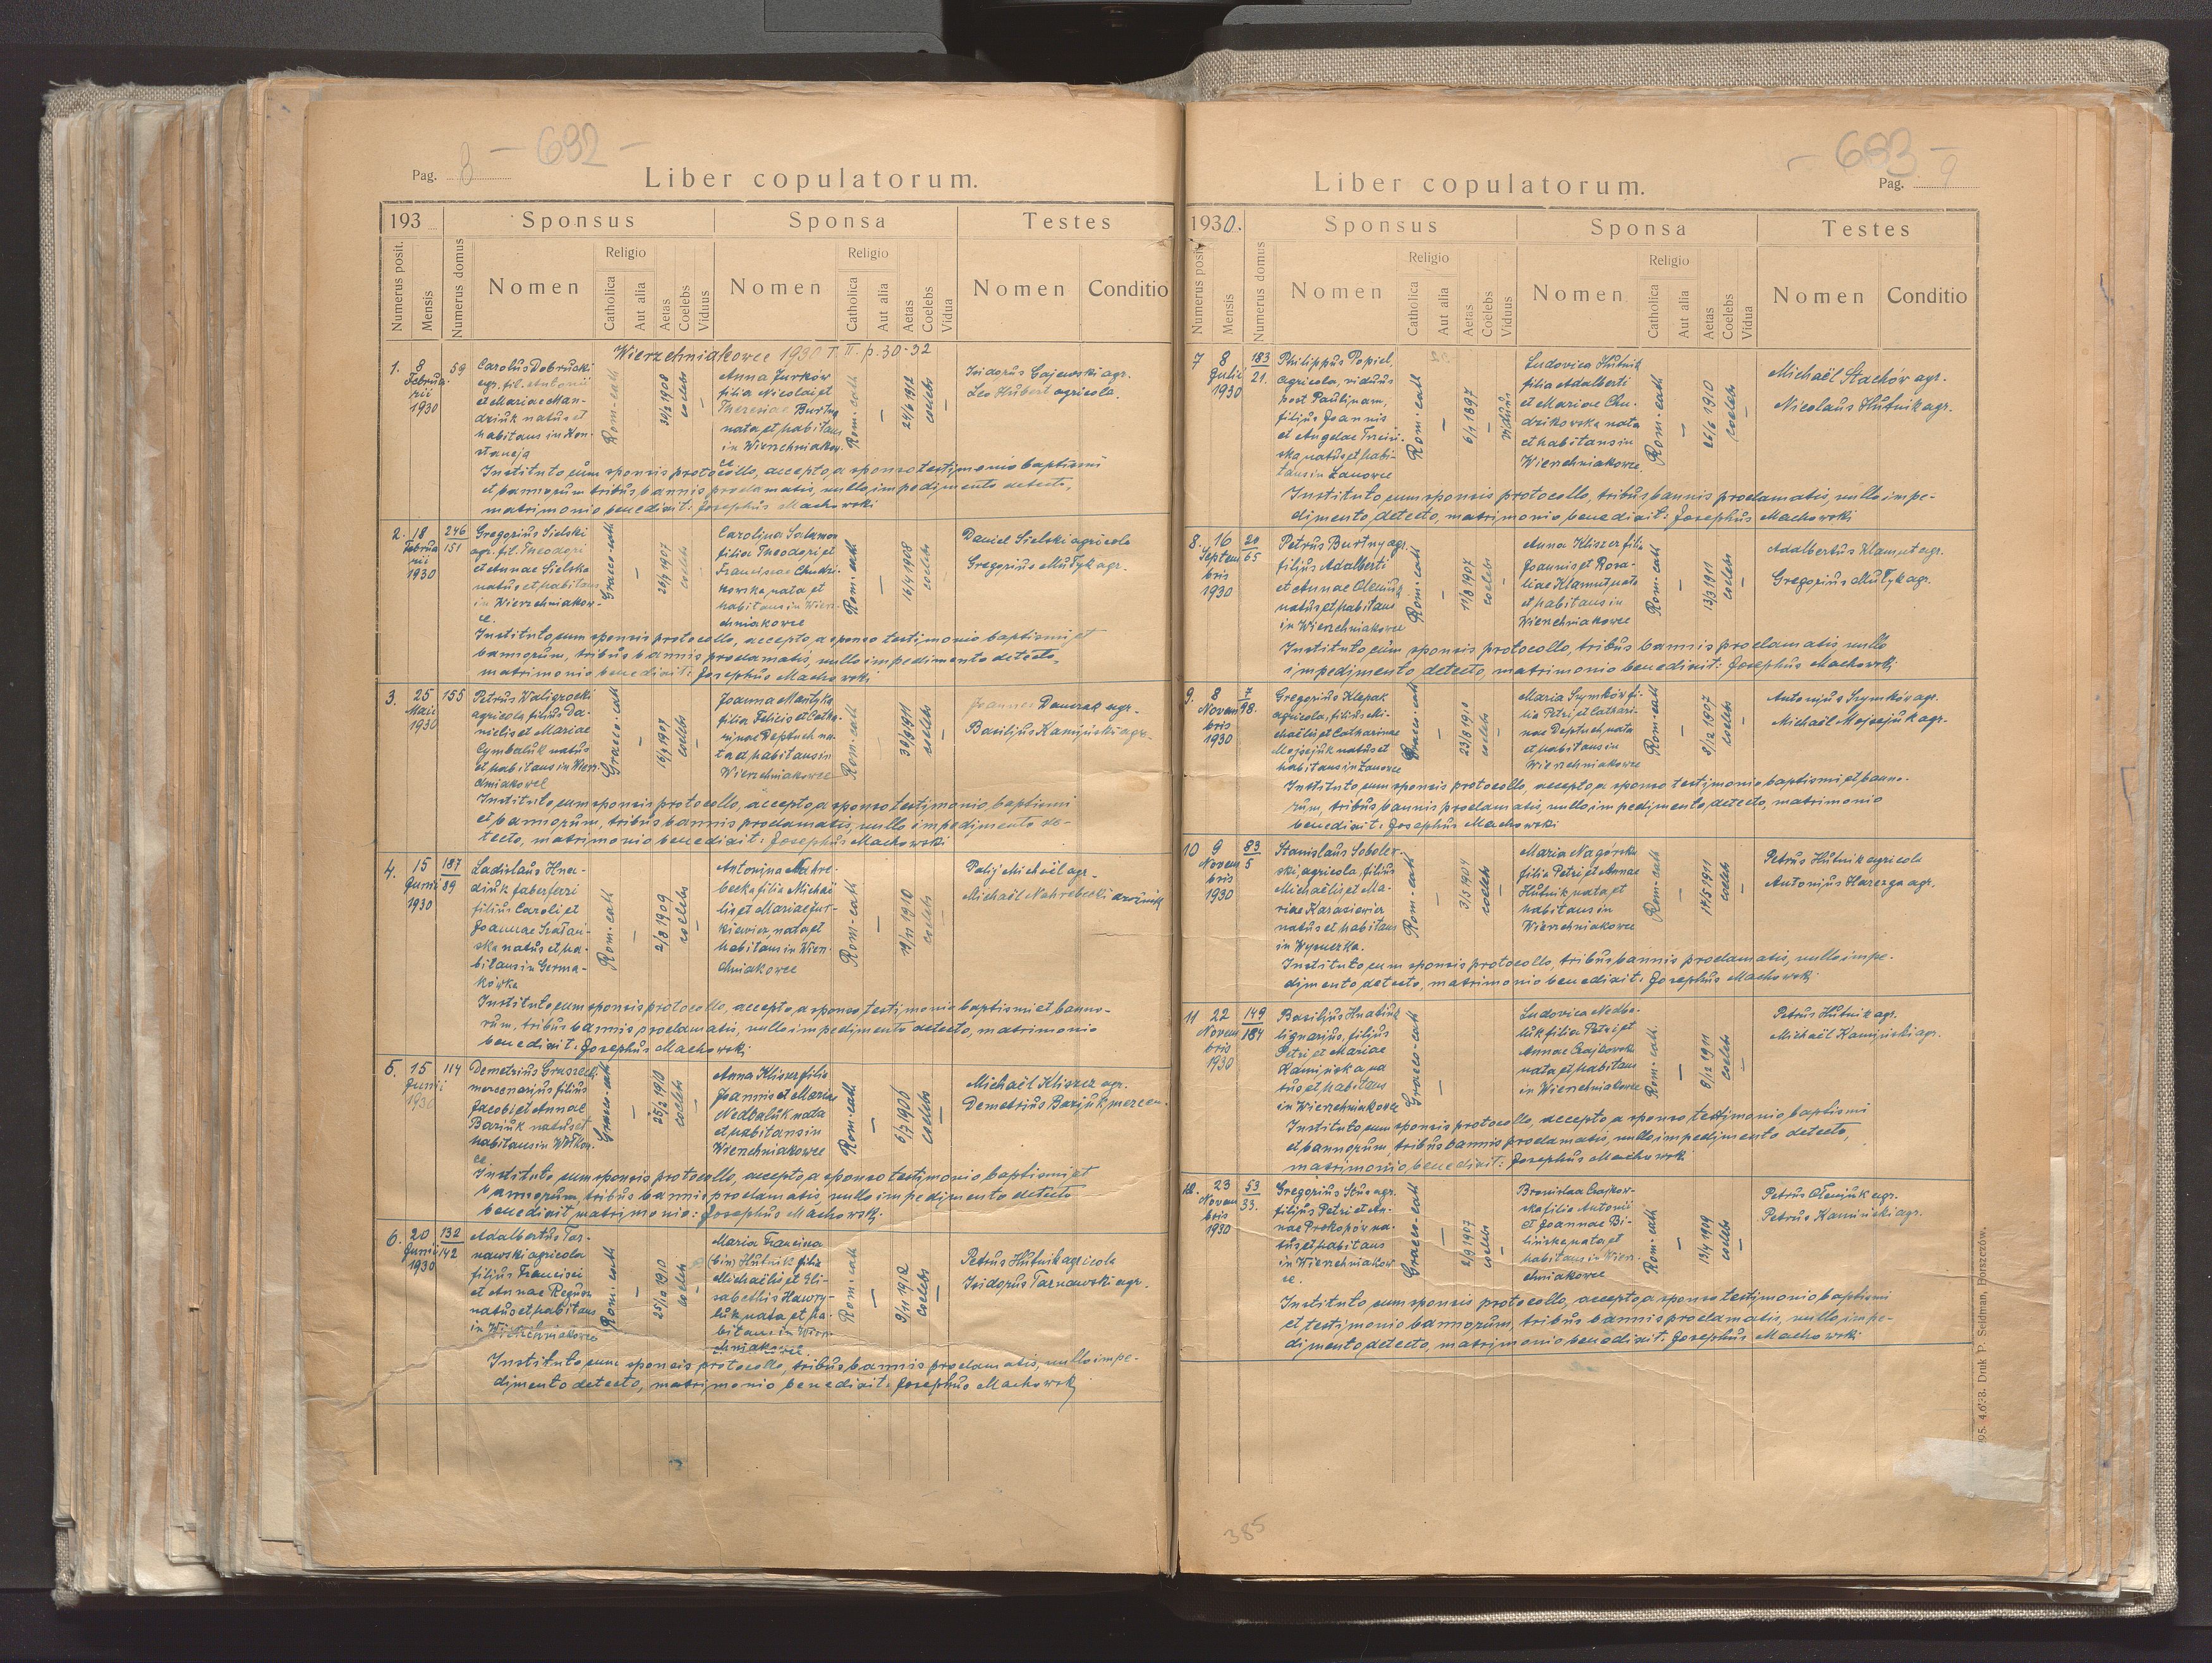 Pag. 8 - 692 -
Liber copulatorum.
193
Sponsus Sponsa Testes
Numerus posit. Mensis Numerus domus Nomen Religio Catholica Aut alia Aetas Coelebs Viduus Nomen Religio Catholica Aut alia Aetas Coelebs Vidua Nomen Conditio
Wierzchniakowce 1930 T. II. p. 30-32
1. 8 Februarii 1930 59
Carolus Dobrucki
agr. fil. Antonii
et Mariae Man-
dziuk natus et
habitans in Kon-
stancja
Rom.-cath
30/2 1908
coelebs
Anna Jurków
filia Nicolai et
Theresiae Burtny
nata et habitans
in Wierzchniakow
ce
Rom.-cath
24/6 1912
coelebs
Isidorus Gajewski agr.
Leo Hubert agricola.
Instituto cum sponsis protocollo, accepto a sponso testimonio baptismi
et bannorum tribus bannis proclamatis, nullo impedimento detecto,
matrimonio benedixit: Josephus Machowski
2. 18 Februarii 1930 246/151
Gregorius Sielski
agr. fil. Theodori
et Annae Sielska
natus et habitans
in Wierzchniakow-
ce.
Graeco-cath
coelebs
Carolina Salamon
filia Theodori et
Franciscae Chudzi-
kowska, nata et
habitans in Wierz-
chniakowce
Rom.-cath
16/4 1908
coelebs
Daniel Sielski agricola
Gregorius Mułyk agr.
Instituto cum sponsis protocollo, accepto a sponso testimonio baptismi et
bannorum, tribus bannis proclamatis, nullo impedimento detecto,
matrimonio benedixit: Josephus Machowski
3. 25 Maii 1930 155
Petrus Waligrocki
agricola filius Da-
nielis et Mariae
Cymbaluk natus
et habitans in Wierz-
chniakowce
Graeco-cath
16/7 1907
coelebs
Joanna Mantyka
filia Felicis et Catha-
rinae Deptuch na-
ta et habitans in
Wierzchniakowce
Rom.-cath
30/9 1911
coelebs
Joannes Danczak agr.
Basilius Kamiński agr.
Instituto cum sponsis protocollo, accepto a sponso testimonio baptismi
et bannorum, tribus bannis proclamatis, nullo impedimento de-
tecto, matrimonio benedixit: Josephus Machowski
4. 15 Junii 1930 187/89
Ladislaus Hna-
diuk faber ferri
filius Caroli et
Joannae Szatań-
ska natus et ha-
bitans in Germa-
kówka
Rom.-cath
2/8 1909
coelebs
Antonina Nahre-
becka filia Michaë-
lis et Mariae Jur-
kiewicz, nata et
habitans in Wierz-
chniakowce
Rom.-cath
19/11 1910
coelebs
Palij Michaël agr.
Michaël Nahrebecki
Instituto cum sponsis protocollo, accepto a sponso testimonio baptismi et banno-
rum, tribus bannis proclamatis, nullo impedimento detecto, matrimonio
benedixit: Josephus Machowski
5. 15 Junii 1930 114
Demetrius Gruszecki
mercenarius filius
Jacobi et Annae
Baziuk natus et
habitans in Wołkow-
ce.
Graeco-cath
25/2 1910
coelebs
Anna Kliszcz filia
Joannis et Mariae
Nedbaluk nata
et habitans in
Wierzchniakowce
Rom.-cath
6/7 1906
coelebs
Michaël Kliszcz agr.
Demetrius Baziuk mercen.
Instituto cum sponsis protocollo, accepto a sponso testimonio baptismi et
bannorum, tribus bannis proclamatis, nullo impedimento detecto
benedixit matrimonio: Josephus Machowski.
6. 20 Junii 1930 132/142
Adalbertus Tar-
nawski agricola
filius Francisci
et Annae Regusz
natus et habitans
in Wierzchniakowce
Rom.-cath
25/10 1910
coelebs
Maria Francisca
(bin) Hutnik filia
Michaëlis et Eli-
sabethis Hawry-
luk nata et ha-
bitans in Wierz-
chniakowce.
Rom.-cath
9/11 1912
coelebs
Petrus Hutnik agricola
Isidorus Tarnawski agr.
Instituto cum sponsis protocollo, tribus bannis proclamatis, nullo impe-
dimento detecto, matrimonio benedixit: Josephus Machowski
- 683 - Pag. 9
Liber copulatorum.
1930.
Sponsus Sponsa Testes
Numerus posit. Mensis Numerus domus Nomen Religio Catholica Aut alia Aetas Coelebs Viduus Nomen Religio Catholica Aut alia Aetas Coelebs Vidua Nomen Conditio
7 8 Julii 1930 183/21.
Philippus Popiel,
agricola, viduus
post Paulinam,
filius Joannis
et Angelae Trzciń-
ska, natus et habi-
tans in Łanowce
Rom.-cath
6/1 1897
viduus
Ludovica Hutnik
filia Adalberti
et Mariae Chu-
dzikowska nata
et habitans in
Wierzchniakowce.
Rom.-cath
26/6 1910
coelebs
Michaël Stachów agr.
Nicolaus Hutnik agr.
Instituto cum sponsis protocollo, tribus bannis proclamatis, nullo impe-
dimento, detecto, matrimonio benedixit: Josephus Machowski
8. 16 Septembris 1930 20/65
Petrus Burtny agr.
filius Adalberti
et Annae Oleniuk
natus et habitans
in Wierzchniakowce
Rom.-cath
11/8 1907
coelebs
Anna Kliszcz filia
Joannis et Rosa-
liae Klamut nata
et habitans in
Wierzchniakowce
Rom.-cath
13/3 1911
coelebs
Adalbertus Klamut agr.
Gregorius Mułyk agr.
Instituto cum sponsis protocollo, tribus bannis proclamatis nullo
impedimento detecto, matrimonio benedixit: Josephus Machowski
9. 8 Novembris 1930 7/98.
Gregorius Klepak
agricola, filius Mi-
chaëlis et Catharinae
Mojsejuk natus et
habitans in Łanowce
Graeco-cath
23/8 1910
coelebs
Maria Szymków fi-
lia Petri et Cathari-
nae Deptuch, nata
et habitans in
Wierzchniakowce
Rom.-cath
8/12 1907
coelebs
Antonius Szymków agr.
Michaël Mojsejuk agr.
Instituto cum sponsis protocollo, accepto a sponso testimonio baptismi et banno-
rum, tribus bannis proclamatis, nullo impedimento, detecto, matrimonio
benedixit: Josephus Machowski
10 9 Novembris 1930 83/5
Stanislaus Sobolew-
ski, agricola, filius
Michaëlis et Ma-
riae Karasiewicz
natus et habitans
in Wysuczka.
Rom.-cath
3/5 1904
coelebs
Maria Nagórska
filia Petri et Annae
Hutnik nata, et
habitans in
Wierzchniakowce
Rom.-cath
17/5 1911
coelebs
Petrus Hutnik agricola
Antonius Harezga agr.
Instituto cum sponsis protocollo, tribus bannis proclamatis, nullo impe-
dimento, detecto, matrimonio benedixit: Josephus Machowski
11 22 Novembris 1930 149/184
Basilius Hnatiuk
lignarius, filius
Petri et Mariae
Kamińska na
tus et habitans
in Wierzchniakowce
Graeco-cath
Ludovica Nedba-
luk filia Petri et
Annae Czajkowska
nata et habitans
in Wierzchniakowce
Rom.-cath.
8/12 1911
coelebs
Petrus Hutnik agr.
Michaël Kamiński agr.
Instituto cum sponsis protocollo, accepto a sponso testimonio baptismi
et bannorum, tribus bannis proclamatis, nullo impedimento detecto,
matrimonio benedixit: Josephus Machowski
12. 23 Novembris 1930 53/33.
Gregorius Stus agr.
filius Petri et An-
nae Prokopów na-
tus et habitans
in Wierzchniakow
ce.
Graeco-cath
2/9 1907
coelebs
Bronislaa Czajkow-
ska filia Antonii
et Joannae Bi-
lińska, nata, et
habitans in Wierz-
chniakowce
Rom.-cath
13/4 1909
coelebs
Petrus Oleniuk agr.
Petrus Kamiński agr.
Instituto cum sponsis protocollo, accepto a sponso testimonio baptismi
et testimonio bannorum, tribus bannis proclamatis, nullo impe-
dimento, detecto, matrimonio benedixit: Josephus Machowski
385
Druk P. Seidman, Borszczów.